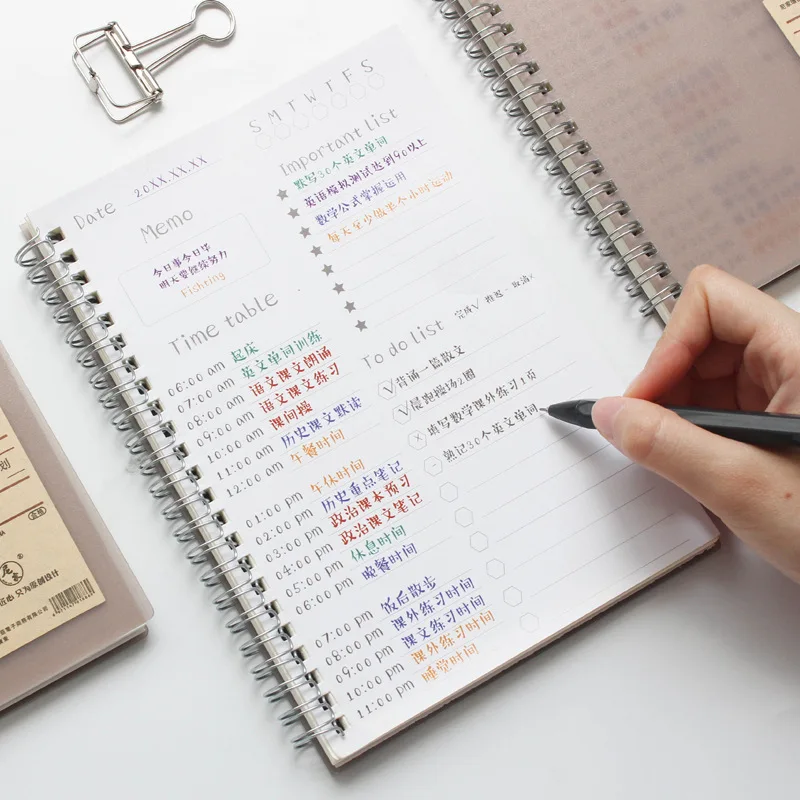 S M T W T F S
Date 20XX.XX.XX
Memo
今日事今日毕
明天要继续努力
Fishting
Important List
默写30个英文单词
英语模拟测试达到90以上
数学公式掌握运用
每天至少做半个小时运动
Time table
06:00 am 起床
07:00 am 英文单词训练
08:00 am 语文课文朗诵
09:00 am 语文课文练习
10:00 am 课间操
11:00 am 历史课文默读
12:00 am 午餐时间
01:00 pm 午休时间
02:00 pm 历史重点笔记
03:00 pm 政治课本预习
04:00 pm 政治课文笔记
05:00 pm 休息时间
06:00 pm 晚餐时间
07:00 pm 饭后散步
08:00 pm 课外练习时间
09:00 pm 课文练习时间
10:00 pm 课外练习时间
11:00 pm 睡觉时间
To do List 完成√ 推迟- 取消×
√ 背诵一篇散文
√ 晨跑操场2圈
× 填写数学课外练习1页
- 熟记30个英文单词
只为原创设计